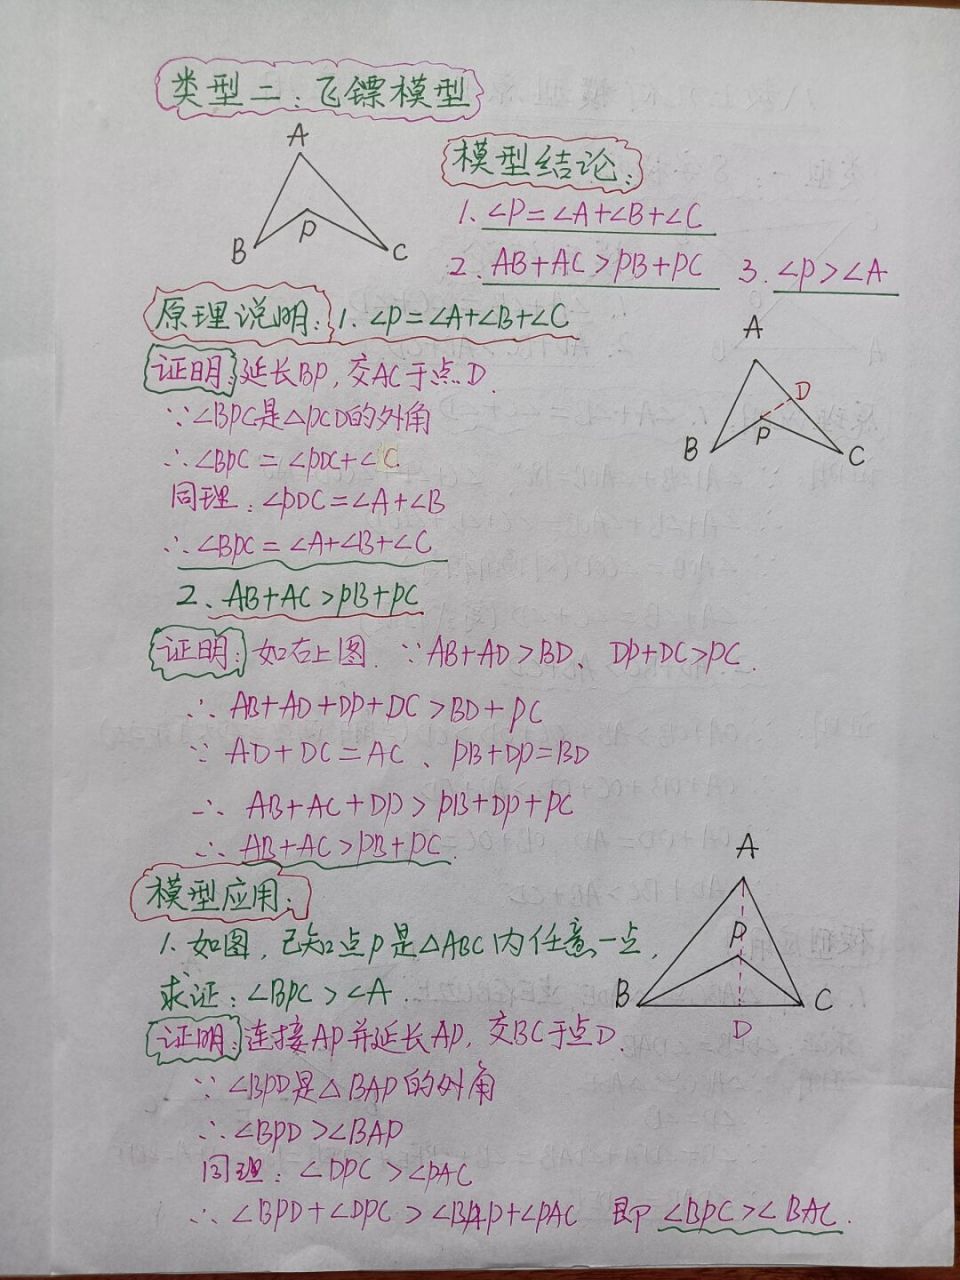 类型二：飞镖模型
A
B
P
C
模型结论：
1. ∠P=∠A+∠B+∠C
2. AB+AC>PB+PC 3. ∠P>∠A
原理说明：1. ∠P=∠A+∠B+∠C
证明：延长BP，交AC于点D.
∵∠BPC是△PCD的外角
∴∠BPC=∠PDC+∠C.
同理：∠PDC=∠A+∠B
∴∠BPC=∠A+∠B+∠C
A
D
B
P
C
2、AB+AC>PB+PC
证明：如右上图. ∵AB+AD>BD、DP+DC>PC.
∴AB+AD+DP+DC>BD+PC
∵AD+DC=AC、PB+DP=BD
∴AB+AC+DP>PB+DP+PC
∴AB+AC>PB+PC.
模型应用：
1. 如图，已知点P是△ABC内任意一点，
求证：∠BPC>∠A.
A
P
B
C
D
证明：连接AP并延长AP，交BC于点D
∵∠BPD是△BAP的外角
∴∠BPD>∠BAP
同理：∠DPC>∠PAC
∴∠BPD+∠DPC>∠BAP+∠PAC 即∠BPC>∠BAC.